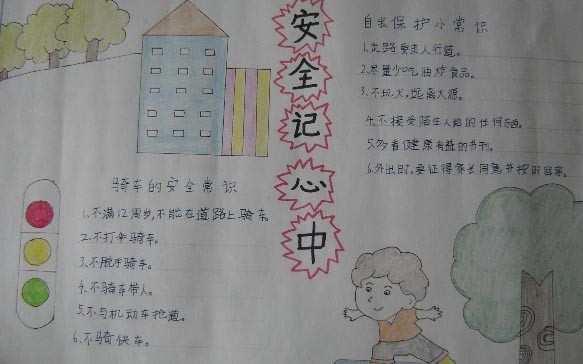 安全记心中
自我保护小常识
1.走路要走人行道。
2.尽量少吃油炸食品。
3.不玩火,远离火源。
4.不接受陌生人给的任何
5.多看健康有益的书刊。
6.外出时,要征得家长同意并按时回家。
骑车的安全常识
1.不满12周岁,不能在道路上骑车。
2.不打伞骑车。
3.不脱手骑车。
4.不骑车带人。
5.不与机动车抢道。
6.不骑快车。